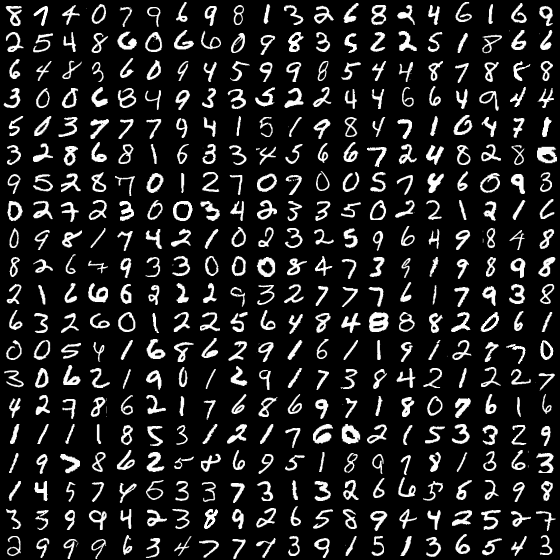 8 7 4 0 7 9 6 9 8 1 3 2 6 8 2 4 6 1 6 9
2 5 4 8 6 0 6 6 0 9 8 3 5 2 2 5 1 8 6 6
6 4 8 3 6 0 9 4 5 9 9 8 5 4 4 8 7 8 8 8
3 0 0 6 8 4 9 3 3 5 2 2 4 4 6 6 4 9 4 4
5 0 3 7 7 7 9 4 1 5 1 9 8 4 7 1 0 4 7 1
3 2 8 6 8 1 6 3 3 4 5 6 6 7 2 4 8 2 8
9 5 2 8 7 0 1 2 7 0 7 0 0 5 7 4 6 0 9 3
0 2 7 2 3 0 0 3 4 2 3 3 5 0 2 2 1 2 1 6
0 9 8 1 7 4 2 1 0 2 3 2 5 9 6 4 9 8 4 8
8 2 6 7 9 3 3 0 0 0 8 4 7 3 9 1 9 8 9 8
2 1 6 6 6 2 2 2 9 3 2 7 7 7 6 1 7 9 3 8
6 3 2 6 0 1 2 2 5 6 4 8 4 8 8 8 2 0 6 1
0 0 5 4 1 6 8 6 2 9 1 6 1 1 9 1 2 7 7 0
3 0 6 2 1 9 0 1 2 9 1 7 3 8 4 2 1 2 2 7
4 2 7 8 6 2 1 7 6 8 6 9 7 1 8 0 7 6 1 6
1 1 1 1 8 5 3 1 2 1 7 6 0 2 1 5 3 3 2 9
1 9 7 8 6 2 5 8 6 9 5 1 8 9 7 8 1 3 6 3
1 4 5 7 4 5 3 3 7 3 1 3 2 6 6 5 6 2 9 8
3 3 9 9 4 2 3 8 9 2 6 5 8 9 4 4 2 5 2 7
2 9 9 9 6 3 4 7 7 7 3 9 1 5 1 3 6 5 6